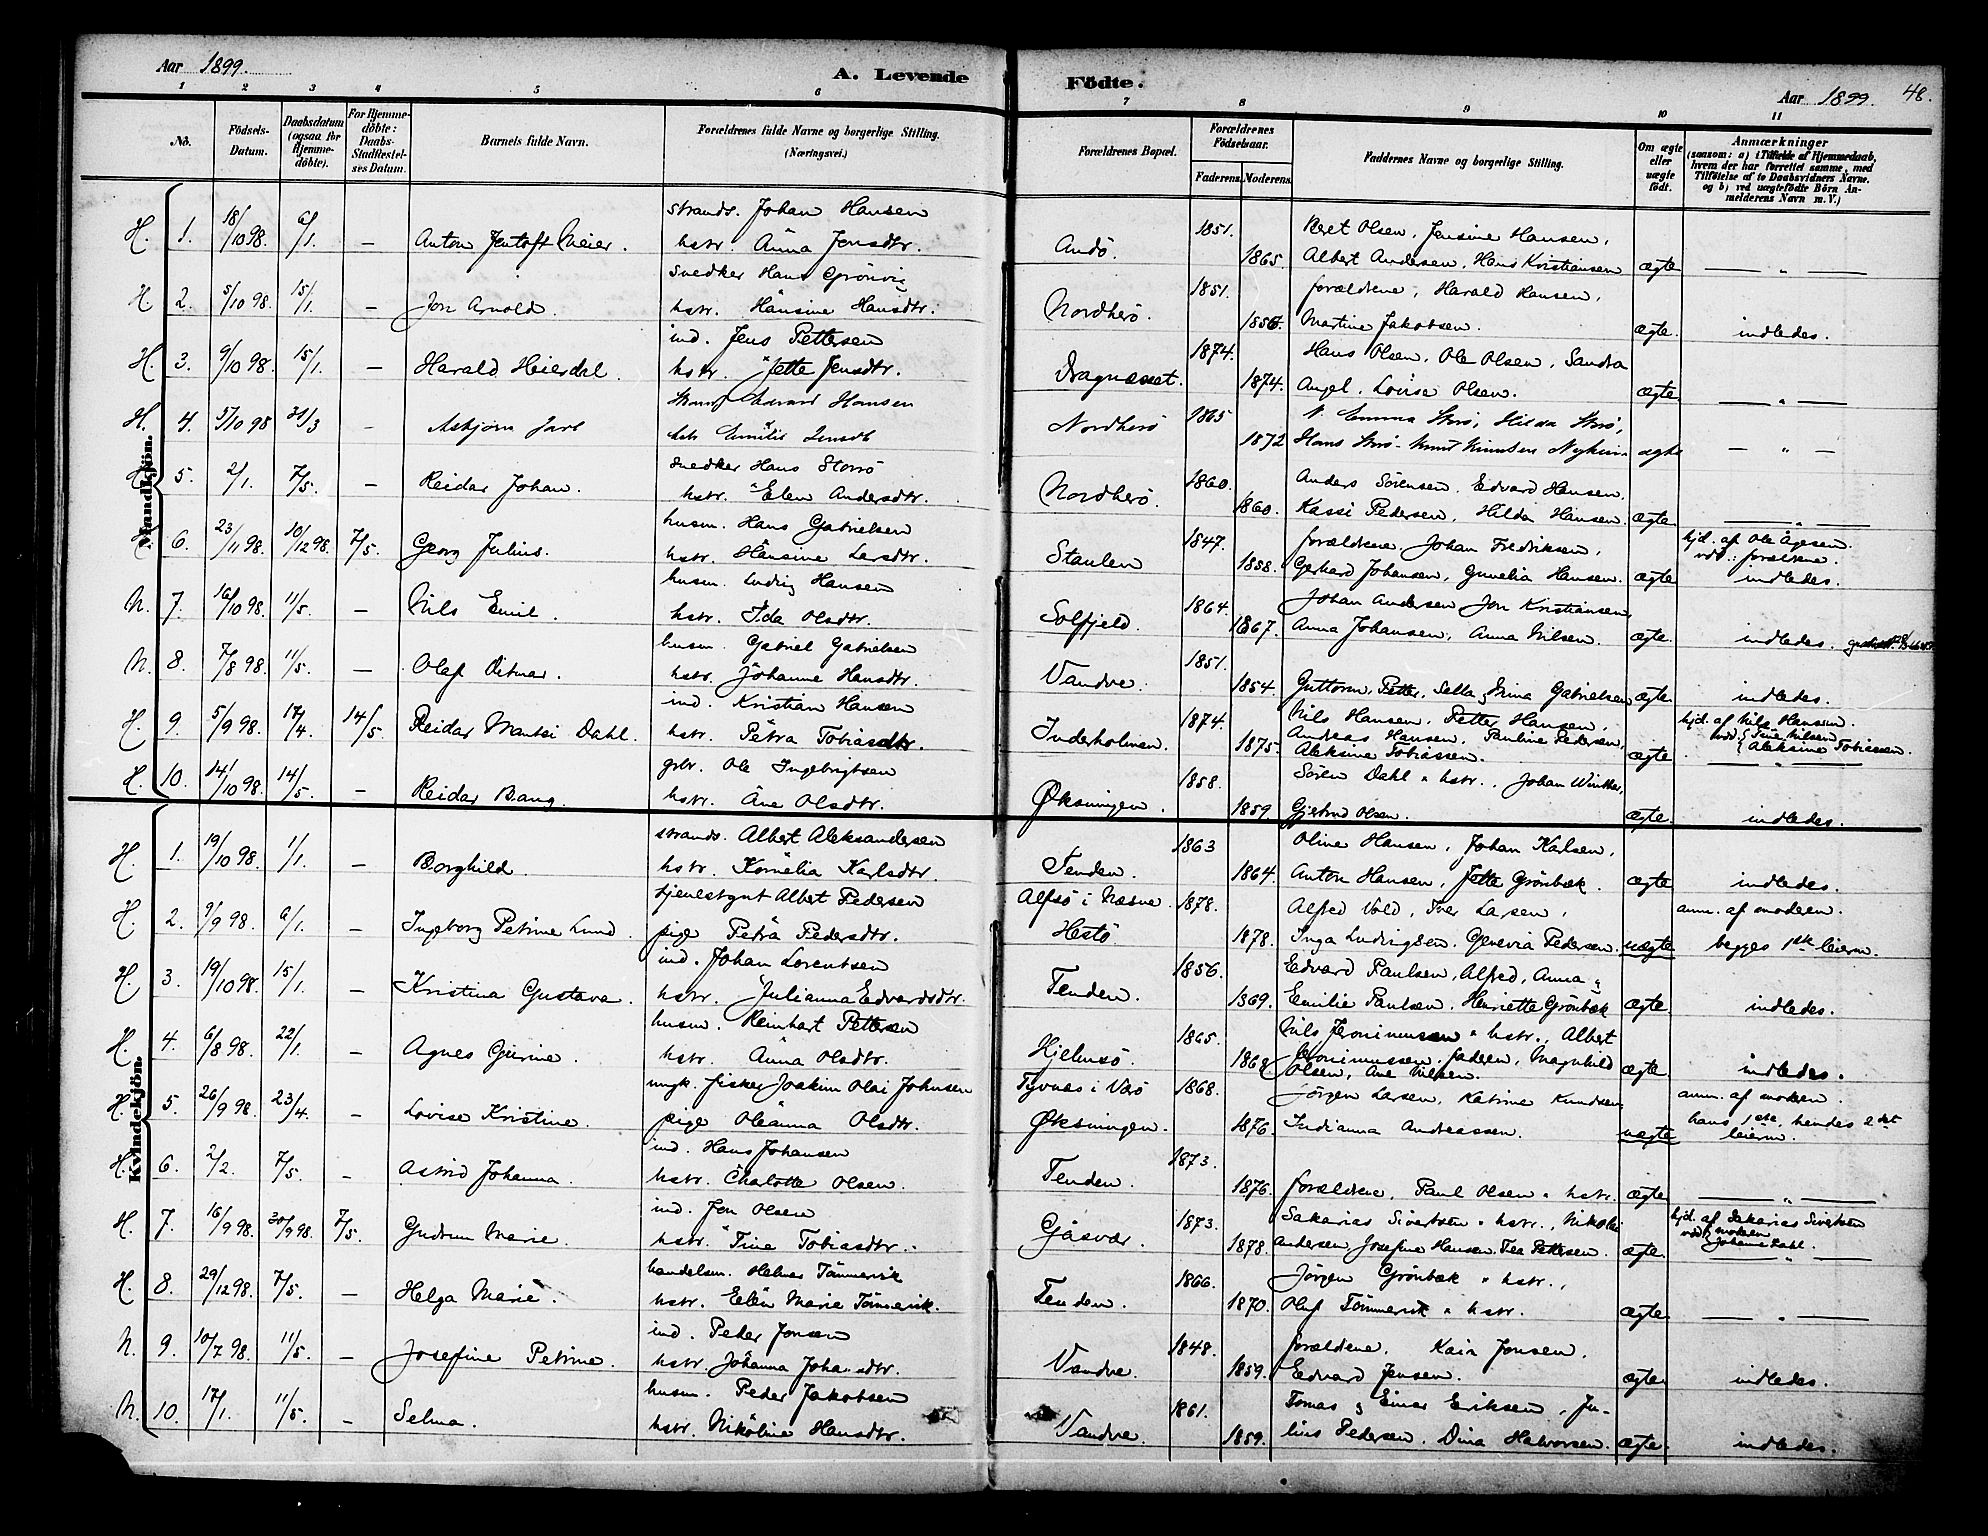 Aar 1899.
A. Levende Födte.
Aar 1899.
48.
1 2 3 4 5 6 7 8 9 10 11
No.
Födsels-Datum.
Daabsdatum (ogsaa for Hjemme-döbte).
For Hjemme-döbte: Daabs-Stadfæstel-ses Datum.
Barnets fulde Navn.
Forældrenes fulde Navne og borgerlige Stilling. (Næringsvei.)
Forældrenes Bopæl.
Forældrenes Födselsaar.
Faderens. Moderens.
Faddernes Navne og borgerlige Stilling.
Om ægte eller uægte födt.
Anmærkninger
(saasom: a) i Tilfælde af Hjemmedaab, hvem der har forrettet samme, med Tilföielse af to Daabsvidners Navne. og b) ved uægtefödte Börn An-melderens Navn m. V.)
Mandkjön.
H. 1. 18/10 98. 6/1. — Anton Jentoft Meier. strands. Johan Hansen Andö. 1851. Beret Olsen, Jensine Hansen,
hstr. Anna Jensdtr. 1865. Albert Andersen, Hans Kristiansen ægte — " —
H. 2. 5/10 98. 15/1. — Jon Arnold. snedker Hans Grönvig Nordherö. 1851. forældrene, Harald Hansen,
hstr. Hansine Hansdtr. 1856. Martine Jakobsen. ægte indledes.
H. 3. 9/10 98. 15/1. — Harald Heierdal. ind. Jens Pettersen Dragnæsset. 1874. Hans Olsen, Ole Olsen, Sandra
hstr. Jette Jensdtr. 1874. Angel, Lovise Olsen. ægte — " —
H. 4. 5/10 98 31/3 - Asbjörn Jarl Hansen Nordherö 1865 Emma Storö, Hilda Storö,
hstr Emilie 1872 Hans Storö ægte — " —
H. 5. 2/1. 7/5. — Reidar Johan. snedker Hans Storrö Nordherö. 1860. Anders Sörensen, Edvard Hansen,
hstr. Elen Andersdtr. 1860. Kassi Pedersen, Hilda Hansen ægte — " —
H. 6. 23/11 98. 10/12 98. 7/5. Georg Julius. husm. Hans Gabrielsen Staulen 1847. forældrene, Johan Fredriksen, hjd. af Ole Agesen.
hstr. Hansine Larsdtr. 1858. Gerhard Johansen, Gunelia Hansen. ægte vid.: forældrene. indledes.
N. 7. 16/10 98. 11/5. — Nils Emil. husm. Ludvig Hansen Solfjeld. 1864. Johan Andersen, Jon Kristiansen,
hstr. Ida Olsdtr. 1867. Anna Johansen, Anna Nilsen. ægte. indledes.
N. 8. 7/8 98. 11/5. — Olaf Ditmar. husm. Gabriel Gabrielsen Vandve. 1851.
hstr. Johanne Hansdtr. 1854. Guttorm, Petter, Sella, Nina Gabrielsen ægte indledes.
H. 9. 5/9 98. 17/4. 14/5 Reidar Mantei Dahl. ind. Kristian Hansen Inderholmen. 1874. Nils Hansen, Petter Hansen, hjd. af Nils Hansen.
hstr. Petra Tobiasdtr. 1875. Andreas Hansen, Pauline Pedersen, Aleksine Tobiassen. ægte vid. { Tine Nilsen { Aleksine Tobiassen. — " —
H. 10. 14/10 98. 14/5. — Reidar Bang. grbr. Ole Ingebrigtsen Øksningen. 1858. Sören Dahl " hstr., Johan Winther,
hstr. Ane Olsdtr. 1859 Gjertrud Olsen. ægte. indledes.
Kvindekjön.
H. 1. 19/10 98. 1/1. — Borghild. strands. Albert Aleksandersen Tenden. 1863 Oline Hansen, Johan Karlsen,
hstr. Kornelia Karlsdtr. 1864. Anton Hansen, Jette Grönbæk. ægte indledes.
H. 2. 9/9 98. 6/1. — Ingeborg Petrine Lund. tjenestgut Albert Pedersen Alfsö i Næsne. 1878. Alfred Vold, Iver Larsen, anm. af moderen.
pige Petra Pedersdtr. Hestö 1878. Inga Ludvigsen, Genevia Pedersen. uægte begges 1ste leierm.
H. 3. 19/10 98. 15/1. — Kristina Gustava. ind. Johan Lorentsen Tenden. 1856. Edvard Paulsen, Alfred, Anna "
hstr. Julianna Edvardsdtr. 1869. Emilie Paulsen, Henriette Grönbæk ægte indledes.
H. 4. 6/8 98. 22/1. — Agnes Gurine. husm. Reinhart Pettersen Hjelmsö. 1865. Nils Jeronimussen " hstr., Albert
hstr. Anna Olsdtr. 1868 Jeronimussen, faderen, Magnhild Olsen, Ane Nilsen. ægte indledes.
H. 5. 26/9 98. 23/4. — Lovise Kristine. ungk. fisker Joakim Olai Johnsen Tyvnæs i Verö 1868. Jörgen Larsen, Katrine Knudsen, anm. af moderen.
pige Oleanna Olsdtr. Øksningen. 1876. Indianna Andreassen. uægte hans 1ste, hendes 2det leierm.
H. 6. 2/2. 7/5. — Astrid Johanna. ind. Hans Johansen Tenden. 1873.
hstr. Charlotte Olsen. 1876. forældrene, Paul Olsen " hstr. ægte — " —
H. 7. 16/9 98. 30/9 98. 7/5. Gudrun Marie. ind. Jon Olsen Gåsvær. 1873. Sakarias Sivertsen " hstr., Nikolai hjd. af Sakarias Sivertsen
hstr. Tine Tobiasdtr. 1878. Andersen, Josefine Hansen, Tea Pettersen. ægte. vid. { moderen Johanne Dahl. — " —
H. 8. 29/12 98. 7/5. — Helga Marie. handelsm. Helmer Tömmervik Tenden. 1866. Jörgen Grönbæk " hstr.,
hstr. Elen Marie Tömmervik. 1870. Oluf Tömmervik " hstr. ægte — " —
N. 9. 10/7 98. 11/5. — Josefine Petrine. ind. Peder Jonsen Vandve. 1848. forældrene, Kaia Jonsen,
hstr. Johanna Johansdtr. 1859. Edvard Jensen. ægte indledes.
N. 10. 17/1. 11/5. — Selma. husm. Peder Jakobsen Vandve. 1861. Tomas " Einar Eriksen, Ju-
hstr. Nikoline Hansdtr. 1859. lius Pedersen, Dina Halvorsen. ægte. indledes.